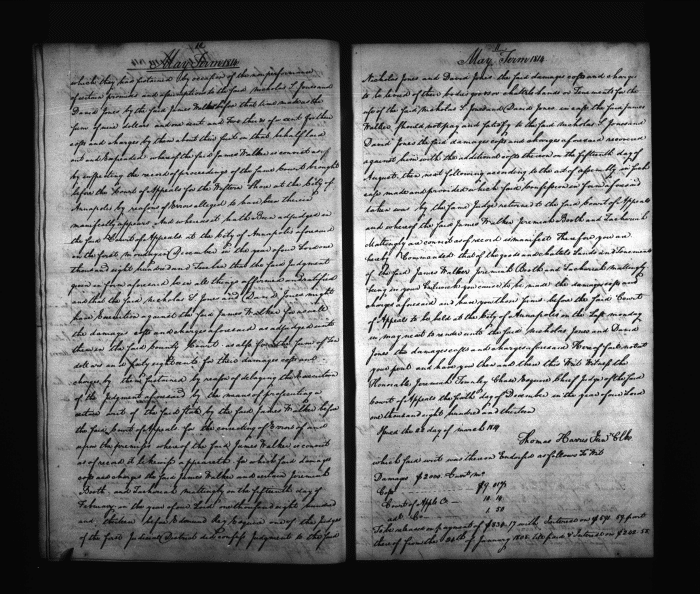 May Term 1814
which they had sustained by occasion of the nonperformance
of certain promises and assumptions to the said Nicholas L Jones and
David Jones by the said James Walker before that time made as the
sum of nine dollars and one cent and two thirds of a cent for their
costs and charges by them about their suit in that behalf laid
out and Expended whereof the said James Walker is convict as
by inspecting the record of proceedings of the same brought
before the Court of Appeals for the Western Shore at the City of
Annapolis by reason of Errors alledged to have been therein
manifestly appears. And whereas it hath Been adjudged in
the said Court of Appeals at the City of Annapolis aforesaid
on the first Monday of December in the year of our Lord one
thousand eight hundred and twelve that the said Judgment
given in form aforesaid be in all things affirmed and ratified
and that the said Nicholas L Jones and David Jones might
have Execution against the said James Walker for as well
the damages costs and charges aforesaid as adjudged unto
them in the said County Court as also for the sum of Ten
dollars and forty eight cents for their damages costs and
charges by them sustained by reason of delaying the Execution
of the Judgment aforesaid by the means of prosecuting a
certain writ of the said State by the said James Walker before
the said Court of Appeals for the correcting of Errors of and
upon the premises whereof the said James Walker is convict
as of record it likewise appeareth for which said damages
costs and charges the said James Walker and certain Jeremiah
Booth and Zachariah Mattingly on the fifteenth day of
February in the year of our Lord one thousand eight hundred
and thirteen before Edmund Key Esquire one of the Judges
of the first Judicial District did confess Judgment to the said
May Term 1814
Nicholas Jones and David Jones the said damages costs and charges
to be levied of their bodies goods or chattels Lands or Tenements for the
use of the said Nicholas L Jones and David Jones in case the said James
Walker should not pay and satisfy to the said Nicholas L Jones and
David Jones the said damages costs and charges aforesaid recovered
against him with the additional costs thereon on the fifteenth day of
August then next following according to the act of assembly in such
case made and provided which said confession in form aforesaid
taken was by the same Judge returned to the said Court of Appeals
and whereof the said James Walker Jeremiah Booth and Zachariah
Mattingly are convict as of record is manifest Therefore you are
hereby Commanded that of the goods and chattels Lands and Tenements
of the said James Walker Jeremiah Booth and Zachariah Mattingly
being in your bailiwick you cause to be made the damages costs and
charges aforesaid and have you those sums before the said Court
of Appeals to be held at the City of Annapolis on the last monday
in may next to render unto the said Nicholas Jones and David
Jones the damages costs and charges aforesaid Hereof fail not at
your peril and have you then and there this Writ Witness the
Honorable Jeremiah Townley Chase Esquire Chief Judge of the said
Court of Appeals the sixth day of December in the year of our Lord
one thousand eight hundred and thirteen
Issued the 28 day of march 1814
Thomas Harris Jun Clk
which said writ was thus on Endorsed as follows To Wit
Damages $2000. Curt. m.
Costs $9 01 2/3
Court of Appls Do 10 48
add. Do 1. 50
thereof from the 26th of January 1808